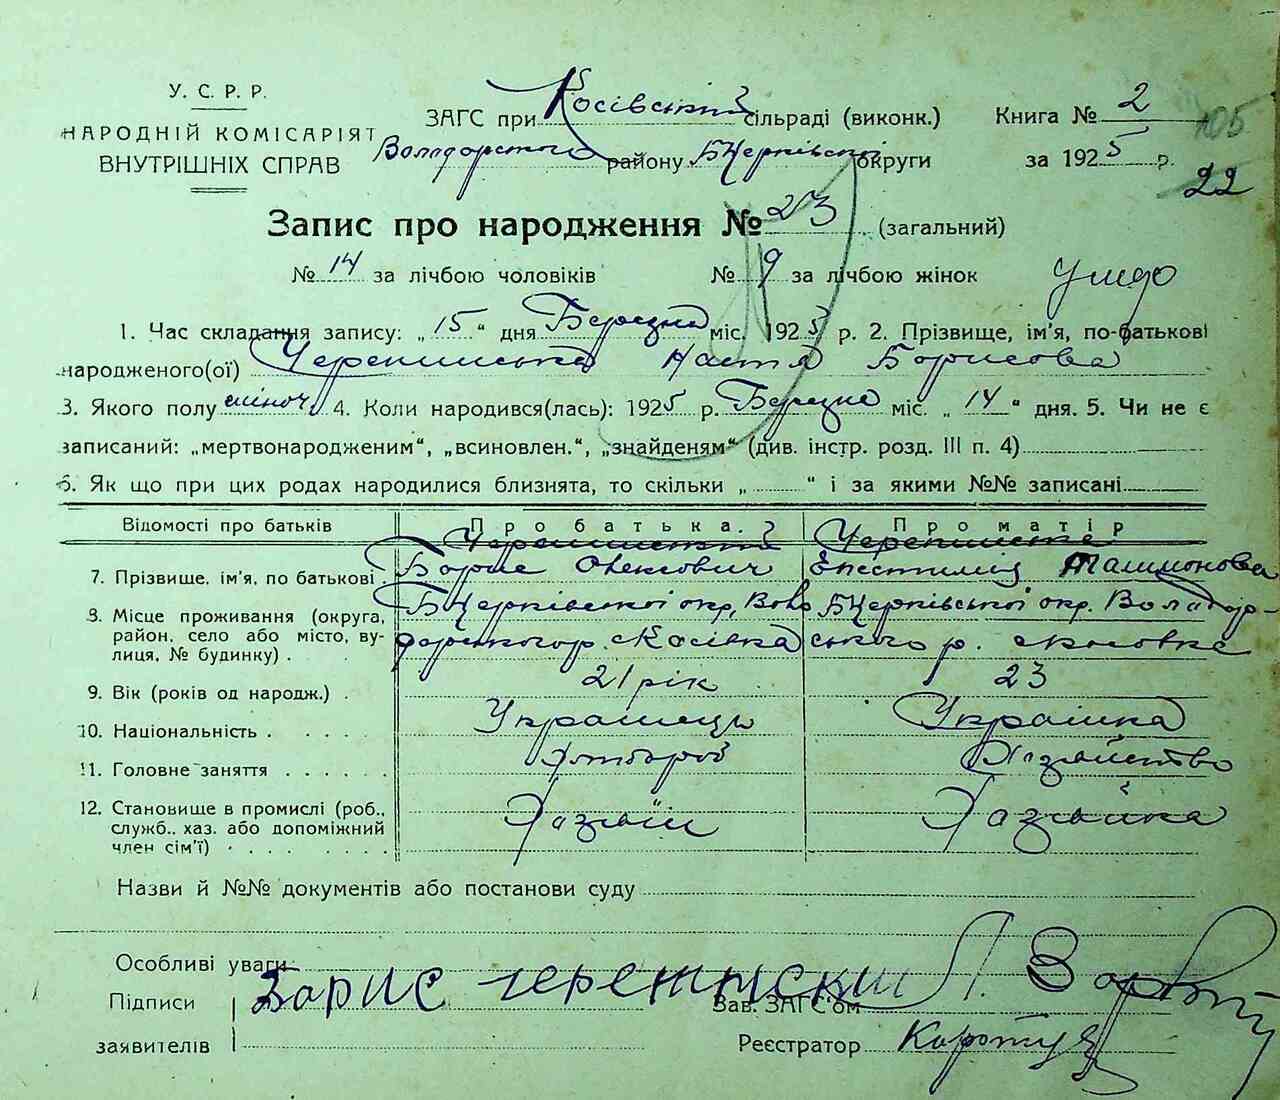 У. С. Р. Р.
НАРОДНІЙ КОМІСАРІЯТ
ВНУТРІШНІХ СПРАВ
ЗАГС при Косівській сільраді (виконк.) Книга № 2
Володарського району БЦерківської округи за 1925 р.
105
22
Запис про народження № 23 (загальний)
№ 14 за лічбою чоловіків № 9 за лічбою жінок
1. Час складання запису: „15“ дня Березня міс. 1925 р. 2. Прізвище, ім'я, по-батькові
народженого(ої) Настя Борисова
3. Якого полу жіноч. 4. Коли народився(лась): 1925 р. Березня міс. „14“ дня. 5. Чи не є
записаний: „мертвонародженим“, „всиновлен.“, „знайденям“ (див. інстр. розд. III п. 4)
6. Як що при цих родах народилися близнята, то скільки „ “ і за якими №№ записані
Відомості про батьків Про батька. Про матір
7. Прізвище, ім'я, по батькові Борис Олексович
8. Місце проживання (округа, район, село або місто, вулиця, № будинку) БЦерківської окр, Воло БЦерківської окр. Володар-
дарського р. с. Косівка ського р. с. Косовка
9. Вік (років од народж.) 21 рік 23
10. Національність Українець Українка
11. Головне заняття Хлібороб Хазяйство
12. Становище в промислі (роб., служб., хаз. або допоміжний член сім'ї) Хазяїн Хазяйка
Назви й №№ документів або постанови суду
Особливі уваги:
Підписи
заявителів
Борис
Зав. ЗАГС'ом
Реєстратор